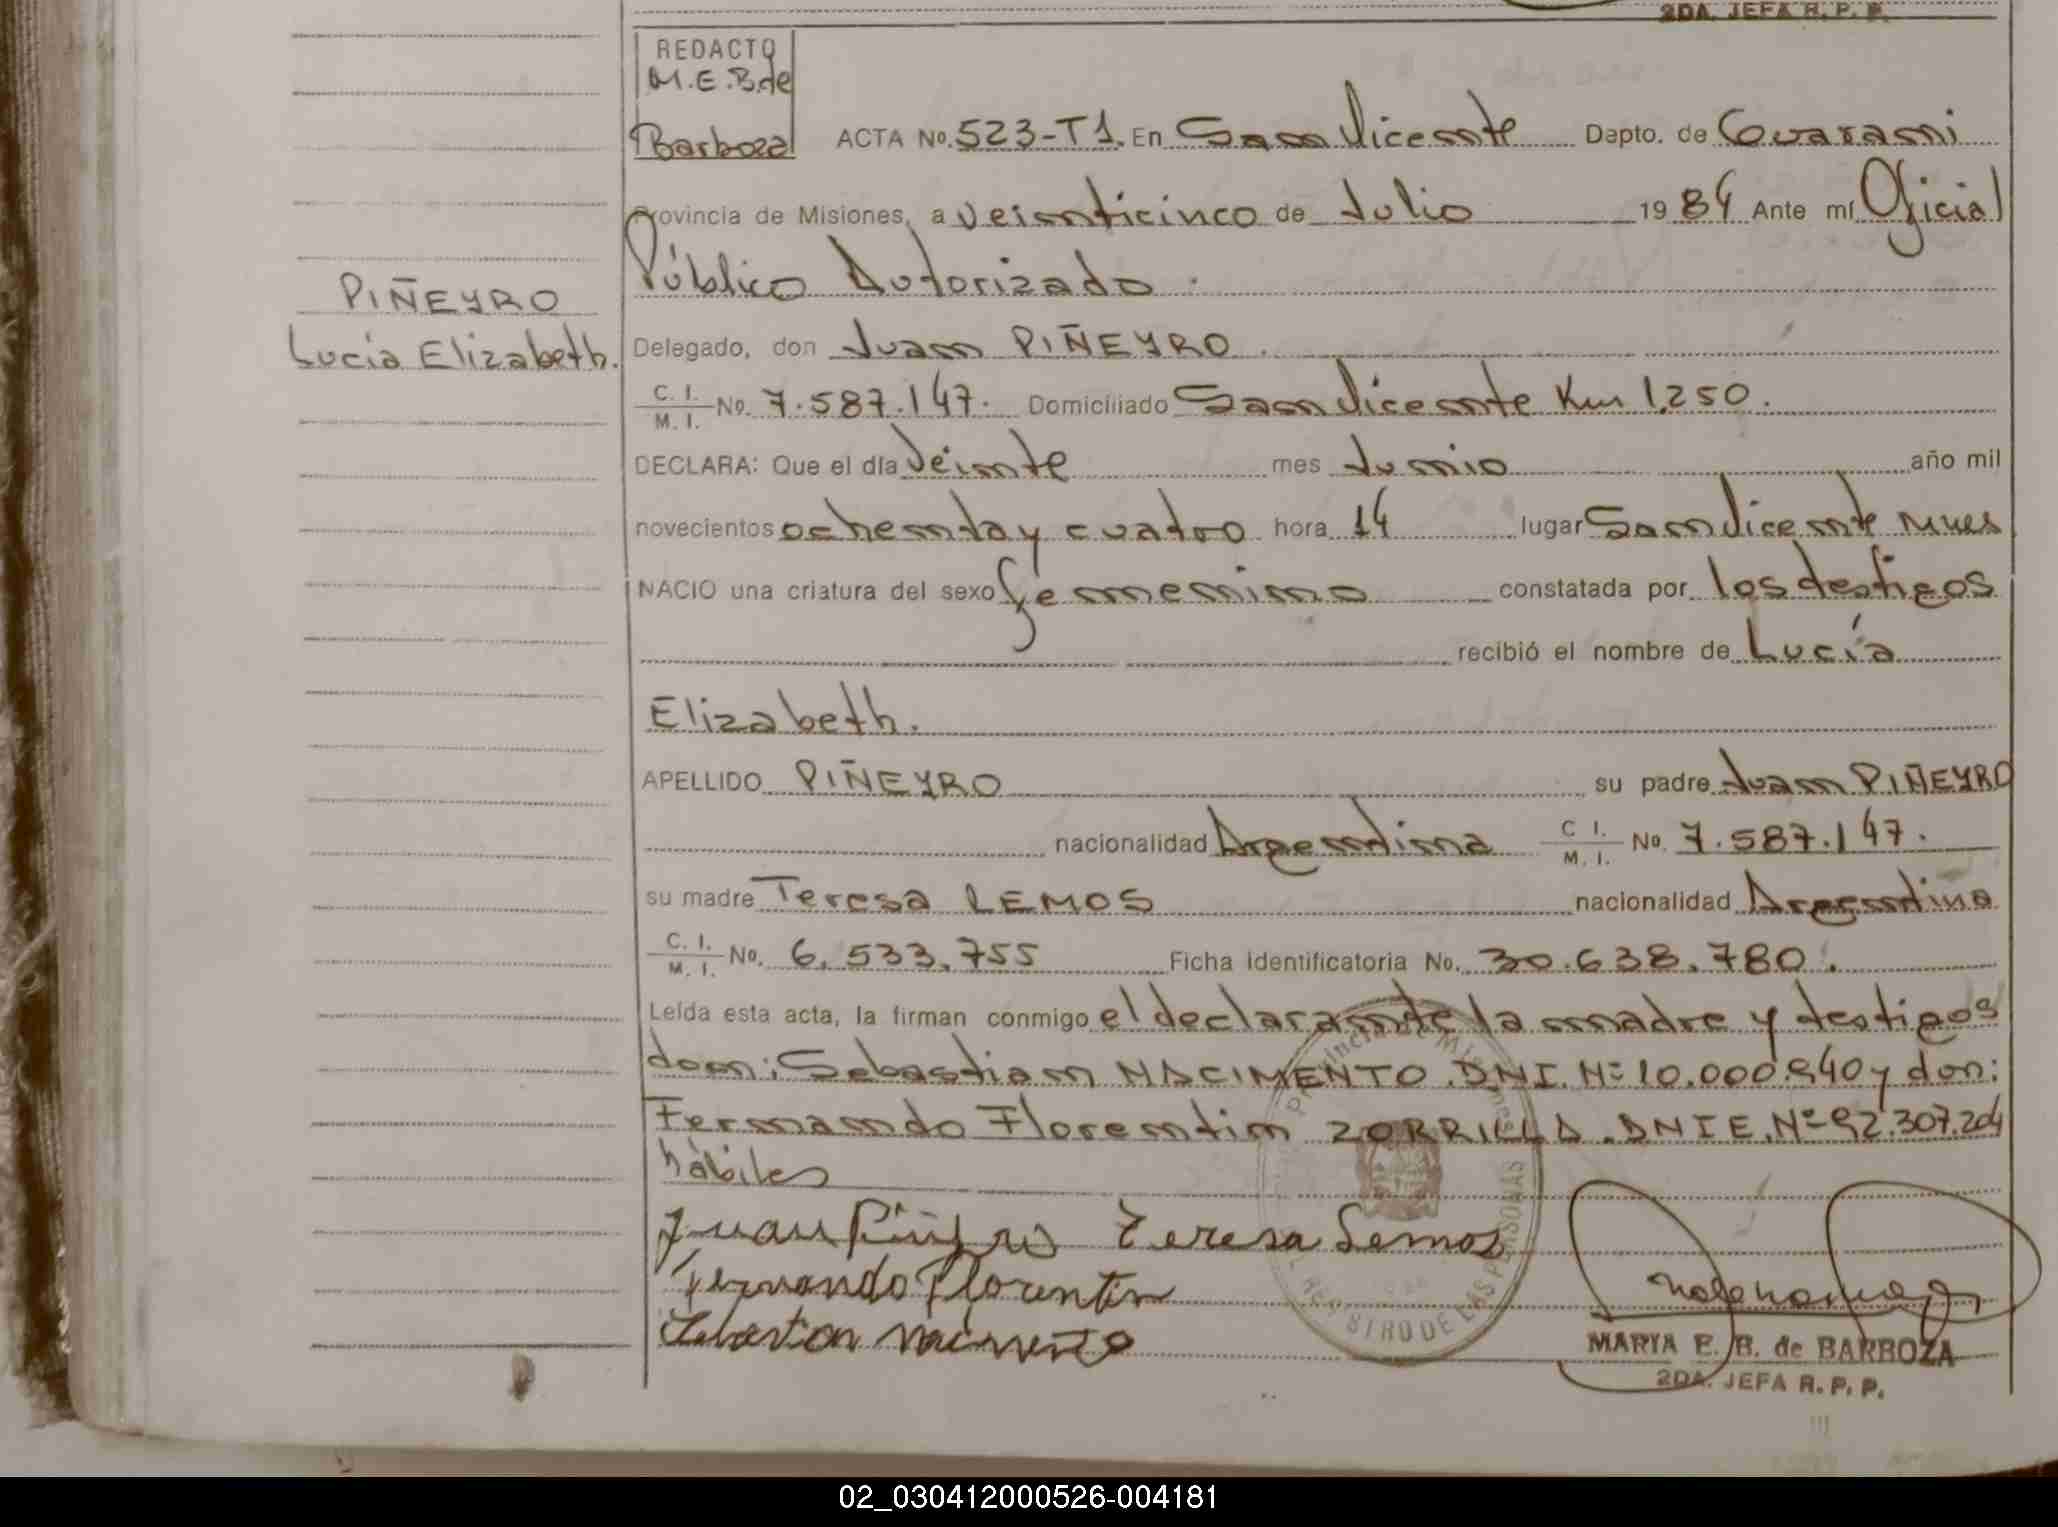 2DA. JEFA R. P. P.
REDACTO
M.E.B.de
Barboza
ACTA No. 523-T1. En San Vicente Dapto. de Guarani
Provincia de Misiones, a veinticinco de Julio 19 84 Ante mí Oficial
Público Autorizado.
PIÑEYRO
Lucía Elizabeth.
Delegado, don Juan PIÑEYRO.
C. I. / M. I. No. 7.587.147. Domiciliado San Vicente Km 1.250.
DECLARA: Que el día Veinte mes Junio año mil
novecientos ochenta y cuatro hora 14 lugar San Vicente Mnes
NACIO una criatura del sexo femenino constatada por los testigos
recibió el nombre de Lucía
Elizabeth.
APELLIDO PIÑEYRO su padre Juan PIÑEYRO
nacionalidad Argentina C I. / M. I. No. 7.587.147.
su madre Teresa LEMOS nacionalidad Argentina
C. I. / M. I. No. 6.533.755 Ficha Identificatoria No. 30.638.780.
Leída esta acta, la firman conmigo el declarante la madre y testigos
don: Sebastian NACIMENTO. DNI. Nº 10.000.940 y don:
Fernando Florentin ZORRILLA. DNIE. Nº 92.307.204
hábiles
Juan Piñeyro Teresa Lemos
Fernando Florentin
Sebastian Nacimento
Provincia de Misiones
REGISTRO DE LAS PERSONAS
MARIA E. B. de BARBOZA
2DA. JEFA R. P. P.
02_030412000526-004181